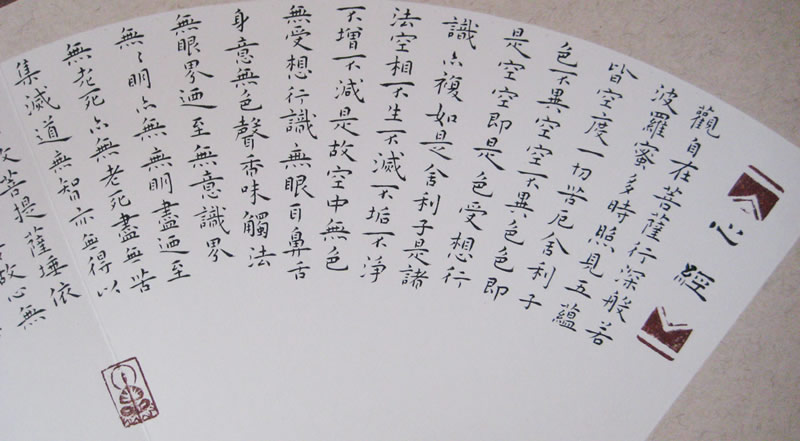 心經
觀自在菩薩行深般若
波羅蜜多時照見五蘊
皆空度一切苦厄舍利子
色不異空空不異色色即
是空空即是色受想行
識亦複如是舍利子是諸
法空相不生不滅不垢不淨
不增不減是故空中無色
無受想行識無眼耳鼻舌
身意無色聲香味觸法
無眼界迺至無意識界
無〻明亦無無明盡迺至
無老死亦無老死盡無苦
集滅道無智亦無得以
菩提薩埵依
故心無